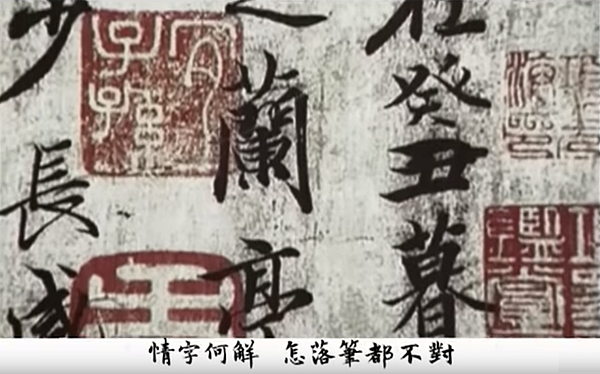 在癸丑暮
之蘭亭
少長咸
情字何解 怎落筆都不對